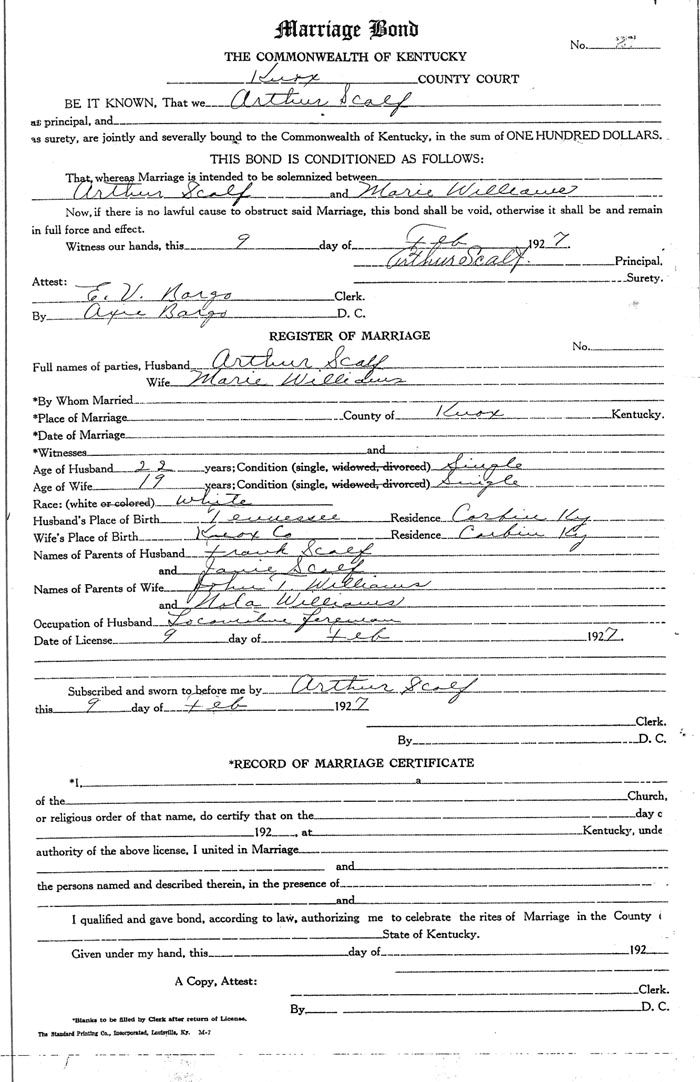 Marriage Bond
No. 2
THE COMMONWEALTH OF KENTUCKY
Knox COUNTY COURT
BE IT KNOWN, That we Arthur Scalf
as principal, and
as surety, are jointly and severally bound to the Commonwealth of Kentucky, in the sum of ONE HUNDRED DOLLARS.
THIS BOND IS CONDITIONED AS FOLLOWS:
That, whereas Marriage is intended to be solemnized between
Arthur Scalf and Marie Williams
Now, if there is no lawful cause to obstruct said Marriage, this bond shall be void, otherwise it shall be and remain
in full force and effect.
Witness our hands, this 9 day of Feb 1927
Arthur Scalf. Principal,
Surety.
Attest:
E. V. Bargo Clerk.
By Axie Bargo D. C.
REGISTER OF MARRIAGE
No.
Full names of parties, Husband Arthur Scalf
Wife Marie Williams
*By Whom Married
*Place of Marriage County of Knox Kentucky.
*Date of Marriage
*Witnesses and
Age of Husband 22 years; Condition (single, widowed, divorced) Single
Age of Wife 19 years; Condition (single, widowed, divorced) Single
Race: (white or colored) White
Husband's Place of Birth Tennessee Residence Corbin Ky
Wife's Place of Birth Knox Co Residence Corbin Ky
Names of Parents of Husband Frank Scalf
and Janie Scalf
Names of Parents of Wife John T. Williams
and Nola Williams
Occupation of Husband Locomotive fireman
Date of License 9 day of Feb 1927.
Subscribed and sworn to before me by Arthur Scalf
this 9 day of Feb 1927
Clerk.
By D. C.
*RECORD OF MARRIAGE CERTIFICATE
*I, a
of the Church,
or religious order of that name, do certify that on the day o
192 , at Kentucky, unde
authority of the above license, I united in Marriage
and
the persons named and described therein, in the presence of
and
I qualified and gave bond, according to law, authorizing me to celebrate the rites of Marriage in the County
State of Kentucky.
Given under my hand, this day of 192
A Copy, Attest:
Clerk.
By D. C.
*Blanks to be filled by Clerk after return of License.
The Standard Printing Co., Incorporated, Louisville, Ky. M-7